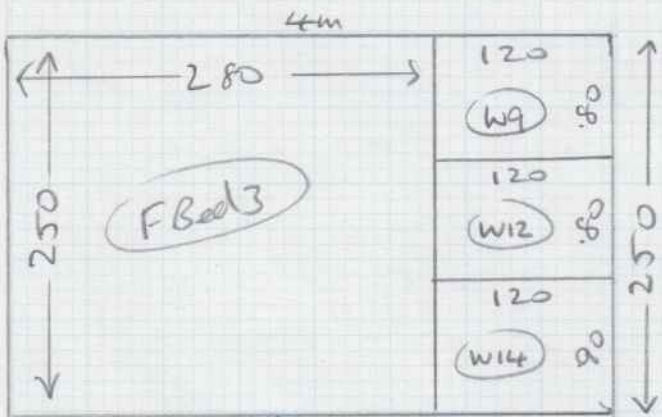 4m
280
250
F Bed3
120
W9 .80
120
W12 .80
120
W14 90
250